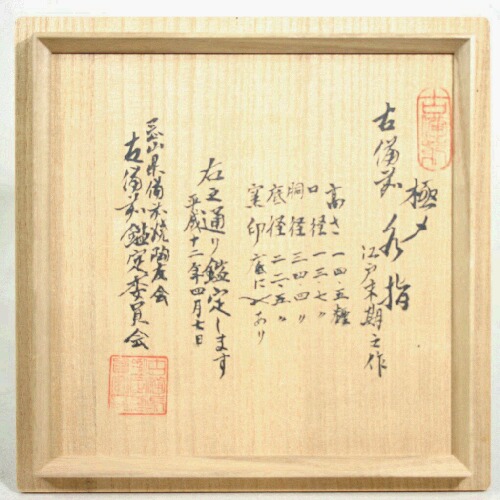 古備前 水指
極メ
江戸末期之作
高さ 一四・五糎
口径 一三・七〃
胴径 三四・四〃
底径 二二・五〃
窯印 底に あり
右之通り鑑定します
平成十二年四月七日
岡山県備前焼陶友会
古備前鑑定委員会